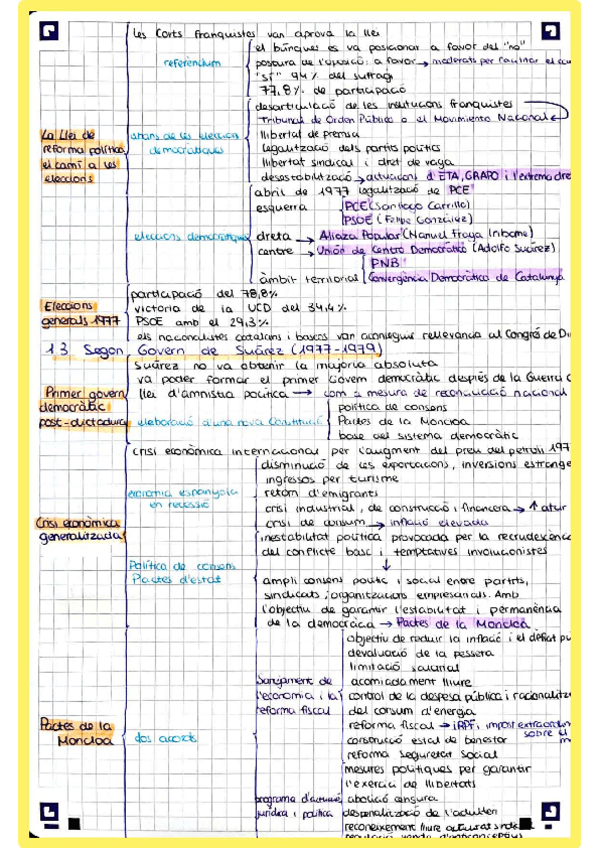 les Corts franquistes van aprova la llei
el búnques es va posicionar a favor del "no"
referèndum
postura de l'oposició: a favor → moderats per facilitar el
"sí" 94% del sufragi
77,8% de participació
desarticulació de les institucions franquistes
Tribunal de Orden Público o el Movimiento Nacional
La Llei de
reforma política,
el camí a les
eleccions
abans de les eleccions
democràtiques
llibertat de premsa
legalització dels partits polítics
llibertat sindical i dret de vaga
desestabilització → actuacions d'ETA, GRAPO i l'extrema dre
abril de 1977 legalització de PCE
esquerra
PCE (Santiago Carrillo)
PSOE (Felipe González)
eleccions democràtiques
dreta → Alianza Popular (Manuel Fraga Iribarne)
centre → Unión de Centro Democrático (Adolfo Suárez)
àmbit territorial
PNB
Convergència Democràtica de Catalunya
Eleccions
generals 1977
participació del 78,8%
victoria de la UCD del 34,4%
PSOE amb el 29,3%
els nacionalistes catalans i bascos van aconseguir rellevancia al Congrés de Di
1.3 Segon Govern de Suárez (1977-1979)
Primer govern
democràtic
post-dictadura
Suárez no va obtenir la majoria absoluta
va poder formar el primer Govern democràtic després de la Guerra C
llei d'amnistia política → com a mesura de reconciliació nacional
elaboració d'una nova Constitució
política de consens
Pactes de la Moncloa
base del sistema democràtic
Crisi econòmica
generalitzada
crisi econòmica internacional per l'augment del preu del petroli 197
economia espanyola
en recessió
disminució de les exportacions, inversions estrange
ingressos per turisme
retorn d'emigrants
crisi industrial, de construcció i financera → ↑ atur
crisi de consum → inflació elevada
Política de consens
Pactes d'estat
inestabilitat política provocada per la recrudescènc
del conflicte basc i temptatives involucionistes
↓
ampli consens polític i social entre partits,
sindicats i organitzacions empresarials. Amb
l'objectiu de garantir l'estabilitat i permanència
de la democràcia → Pactes de la Moncloa
Pactes de la
Moncloa
dos acords
Sanejament de
l'economia i la
reforma fiscal
objectiu de reduir la inflació i el dèficit pú
devaluació de la pesseta
limitació salarial
acomiadament lliure
control de la despesa pública i racionalitz
del consum d'energia
reforma fiscal → IRPF, impost extraordin
sobre el
construcció estat de benestar
reforma Seguretat Social
programa d'actuació
jurídica i política
mesures polítiques per garantir
l'exercici de llibertats
abolició censura
despenalització de l'adulteri
reconeixement lliure